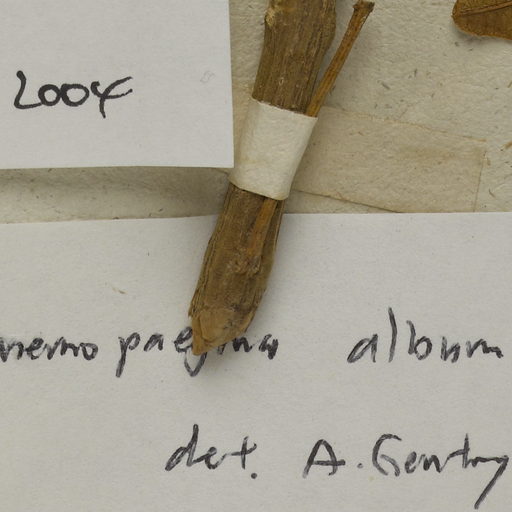 2004
nemopaegma album
det. A. Gentry